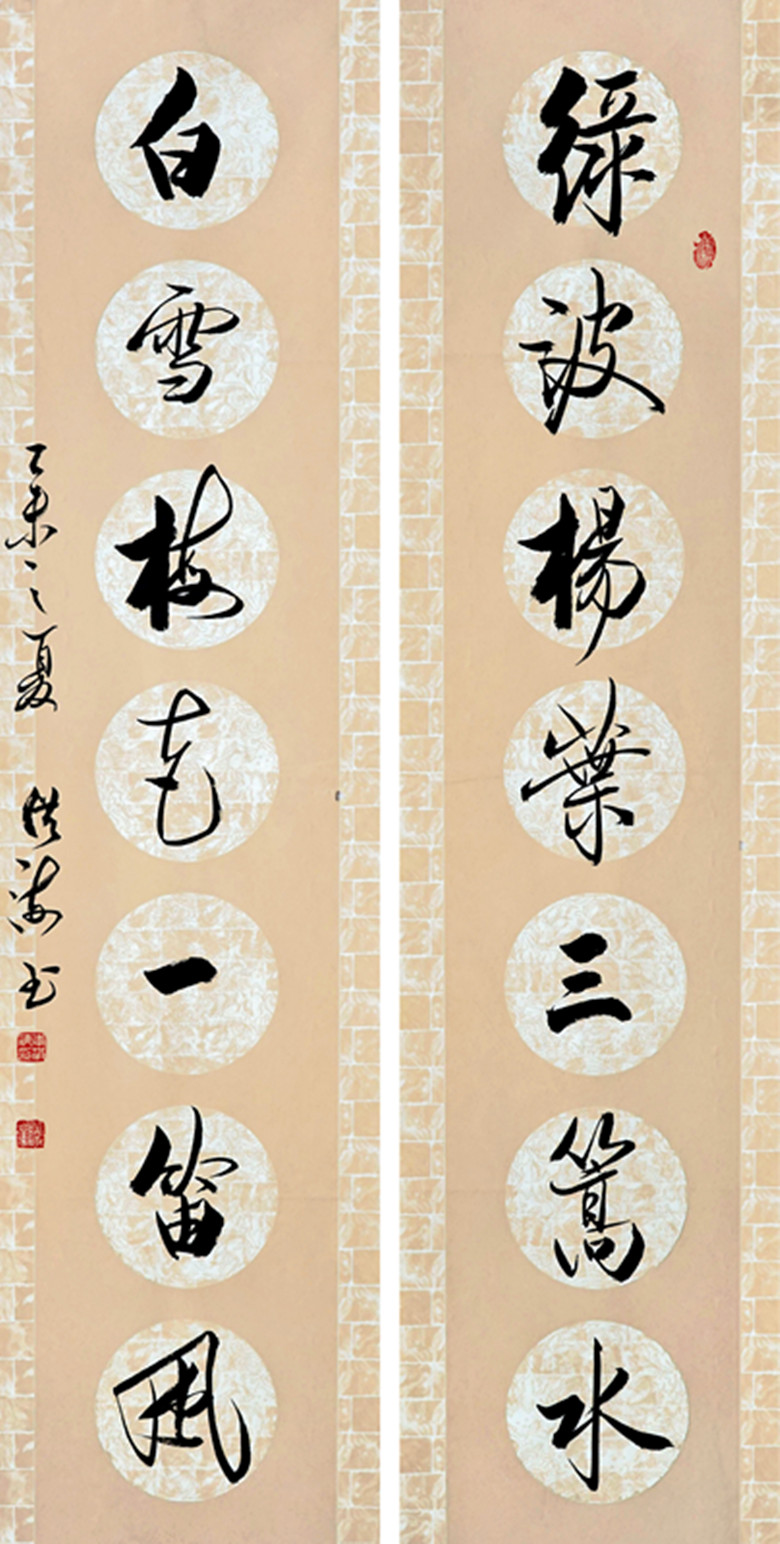 綠波楊葉三篙水
白雪梅花一笛風
乙未之夏
书